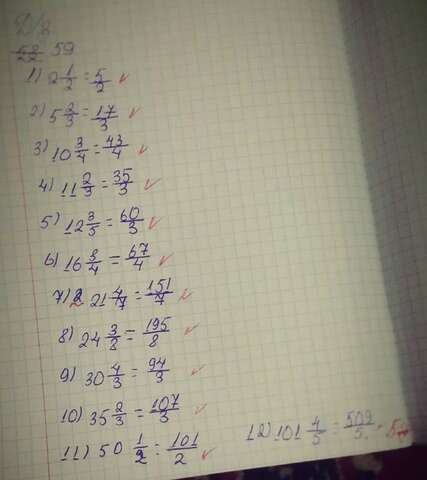 Д/З.
59
1) 2 1/2 = 5/2
2) 5 2/3 = 17/3
3) 10 3/4 = 43/4
4) 11 2/3 = 35/3
5) 12 3/5 = 60/3
6) 16 3/4 = 67/4
7) 21 4/7 = 151/7
8) 24 3/8 = 195/8
9) 30 4/3 = 94/3
10) 35 2/3 = 107/3
11) 50 1/2 = 101/2
12) 101 4/5 = 509/5